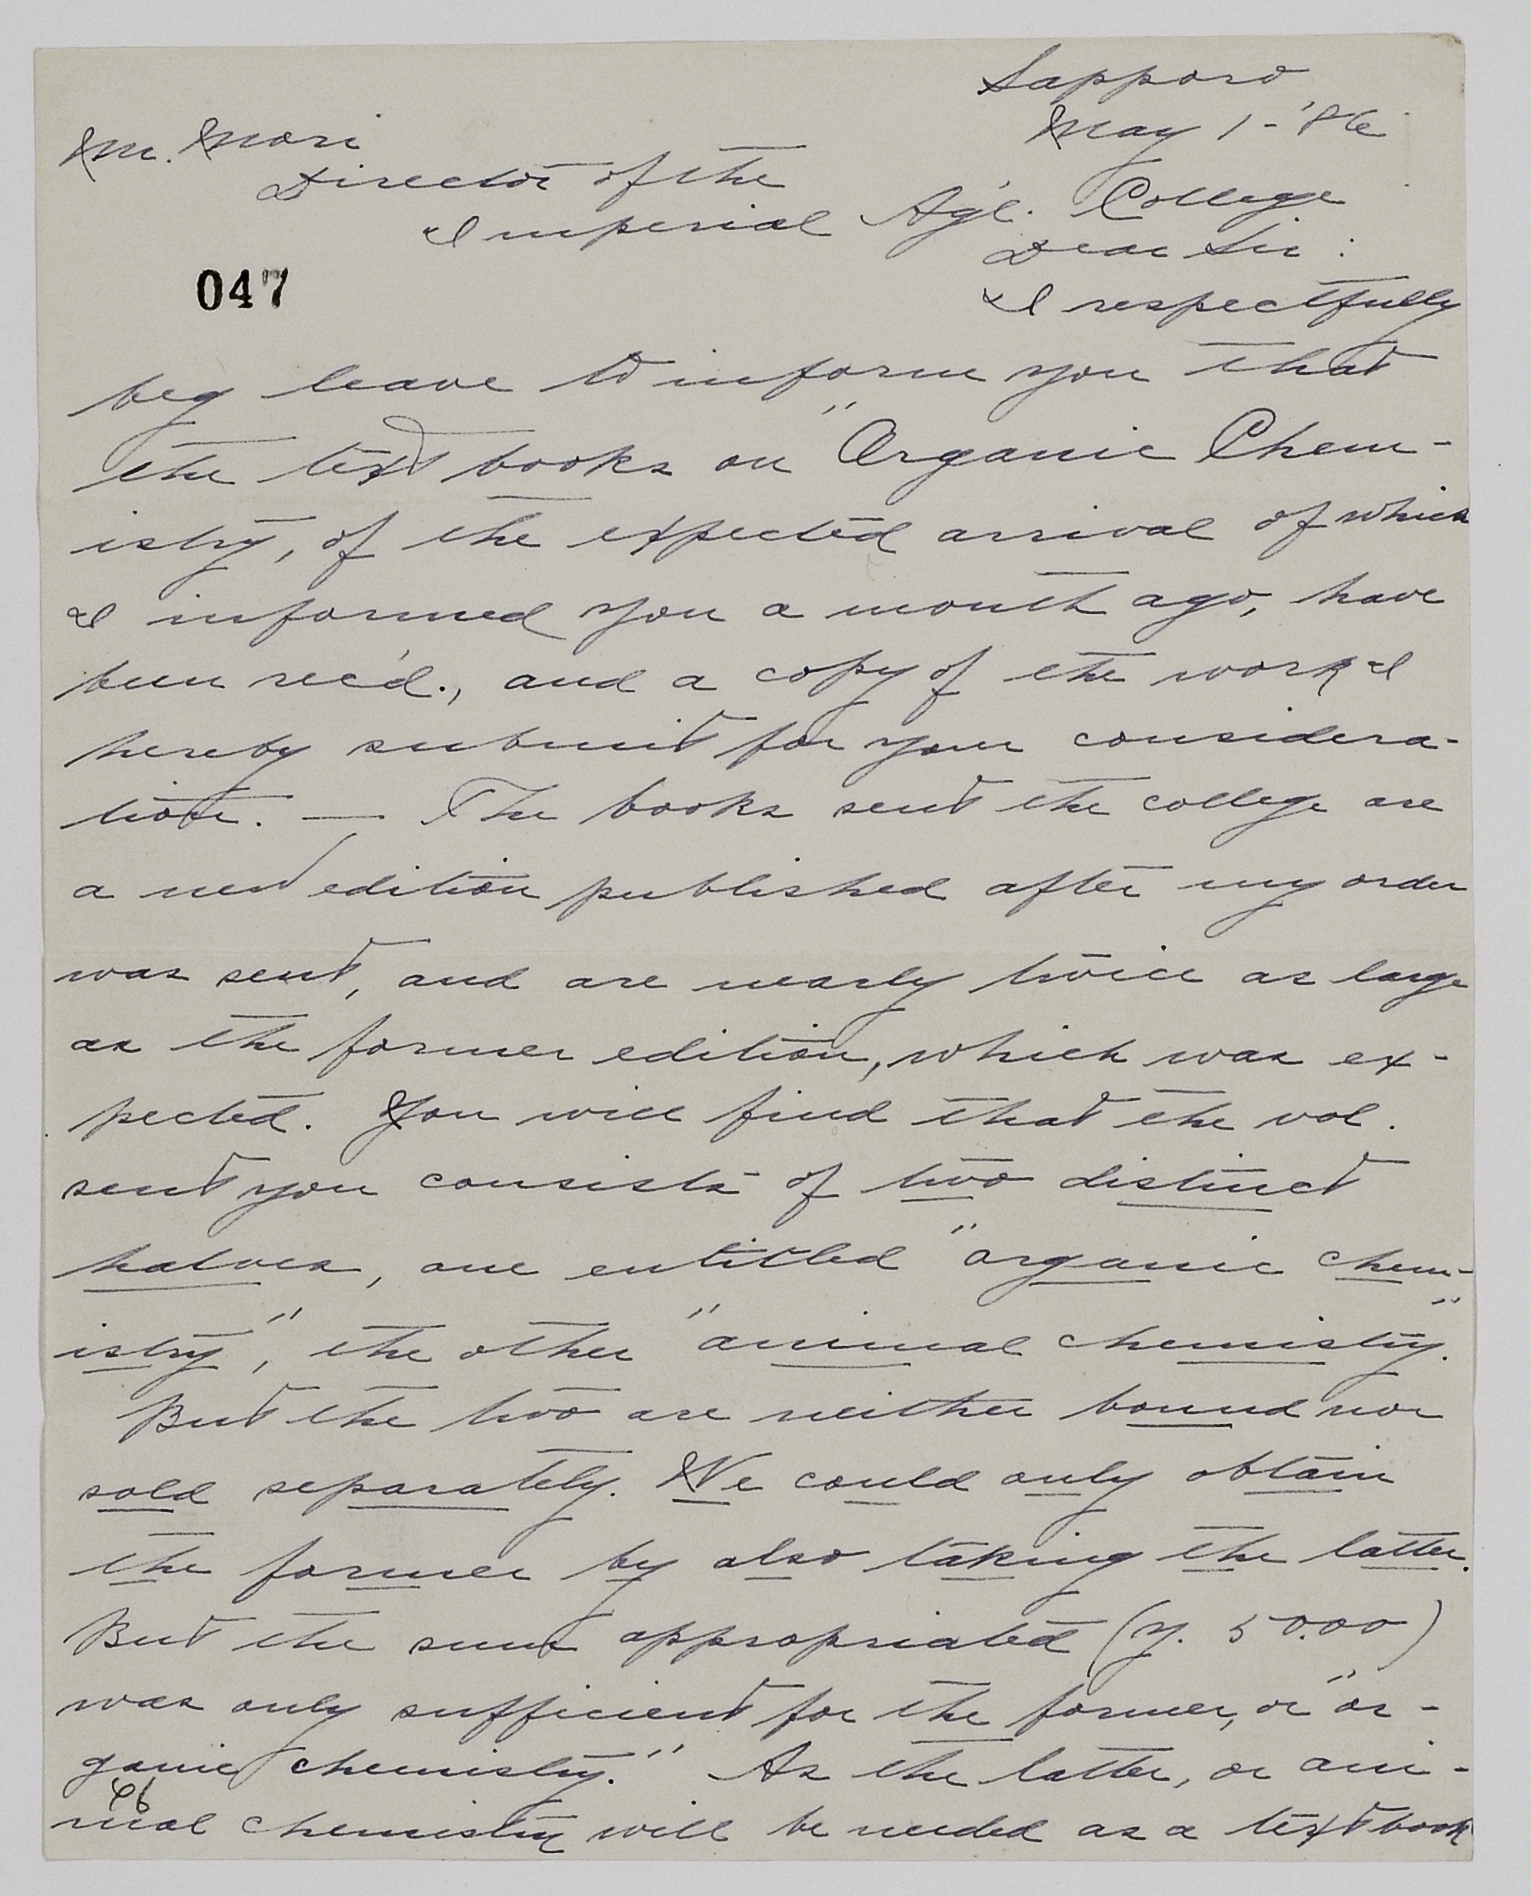 Sapporo
May 1 - '86
Mr. Mori
Director of the
Imperial Agl. College
Dear Sir :
047
I respectfully
beg leave to inform you that
the text books on "Organic Chem-
istry, of the expected arrival of which
I informed you a month ago, have
been rec'd., and a copy of the work I
hereby submit for your considera-
tion. — The books sent the college are
a new edition published after my order
was sent, and are nearly twice as large
as the former edition, which was ex-
pected. You will find that the vol.
sent you consists of two distinct
halves, one entitled "organic chem-
istry", the other "animal chemistry."
But the two are neither bound nor
sold separately. We could only obtain
the former by also taking the latter.
But the sum appropriated (y. 50.00)
was only sufficient for the former, or "or-
ganic chemistry." As the latter, or ani-
mal chemistry will be needed as a text book